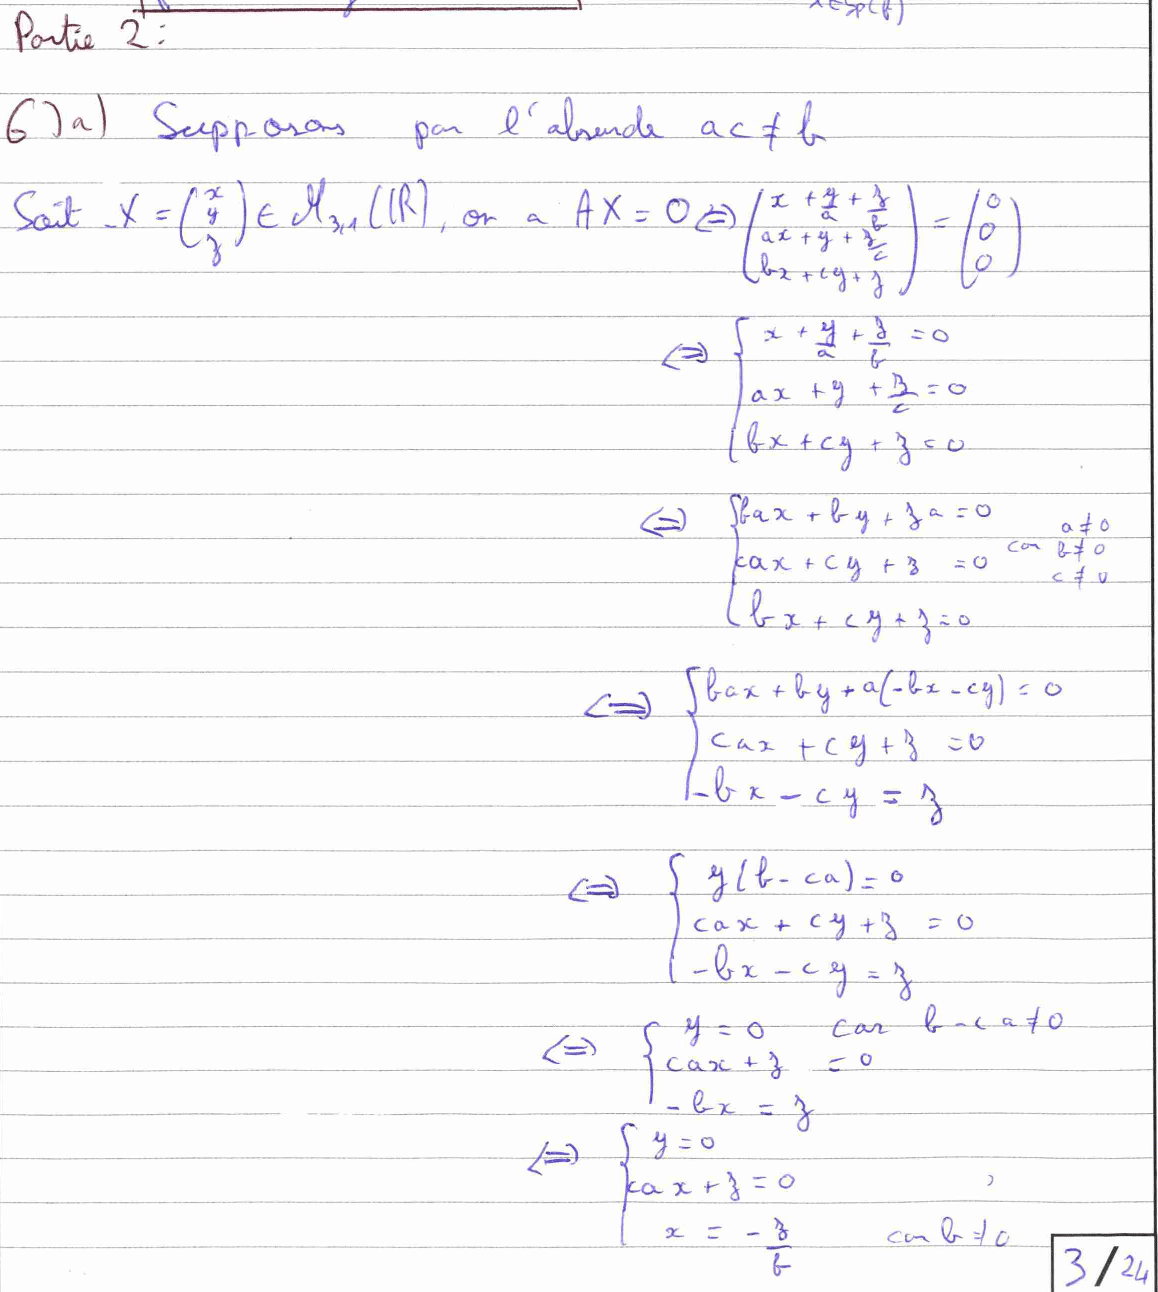 x ∈ Sp(f)
Partie 2 :
6) a) Supposons par l'absurde ac ≠ b
Soit X = (x y z) ∈ M3,1(IR), on a AX = 0 <=> (x + y/a + z/b ; ax + y + z/c ; bx + cy + z) = (0 0 0)
<=> { x + y/a + z/b = 0
ax + y + z/c = 0
bx + cy + z = 0
<=> { bax + by + za = 0
cax + cy + z = 0 car a ≠ 0 b ≠ 0 c ≠ 0
bx + cy + z = 0
<=> { bax + by + a(-bx - cy) = 0
cax + cy + z = 0
-bx - cy = z
<=> { y(b - ca) = 0
cax + cy + z = 0
-bx - cy = z
<=> { y = 0 car b - ca ≠ 0
cax + z = 0
-bx = z
<=> { y = 0
cax + z = 0
x = -z/b car b ≠ 0
3 / 24